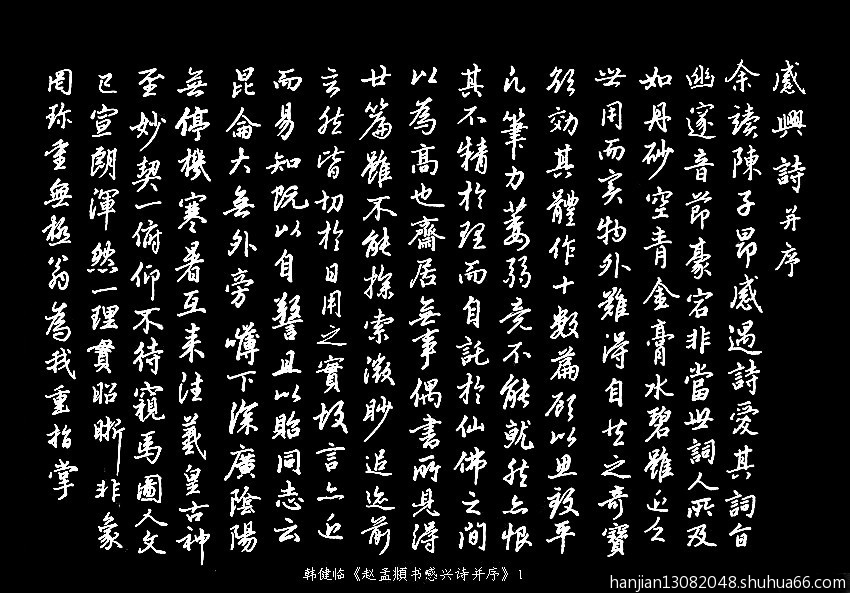 感興詩并序
余讀陳子昂感遇詩愛其詞旨
幽邃音節豪宕非當世詞人所及
如丹砂空青金膏水碧雖近乏
世用而實物外難得自然之奇寶
欲効其體作十數篇顧以思致平
凡筆力萎弱竟不能就然亦恨
其不精於理而自託於仙佛之間
以為高也齋居無事偶書所見得
廿篇雖不能探索微眇追迹前
言然皆切於日用之實故言亦近
而易知既以自警且以貽同志云
昆侖大無外旁礴下深廣陰陽
無停機寒暑互来往羲皇古神
至妙契一俯仰不待窺馬圖人文
已宣朗渾然一理貫昭晰非象
罔珍重無極翁為我重指掌
韩健临《赵孟頫书感兴诗并序》1
hanjian13082048.shuhua66.com